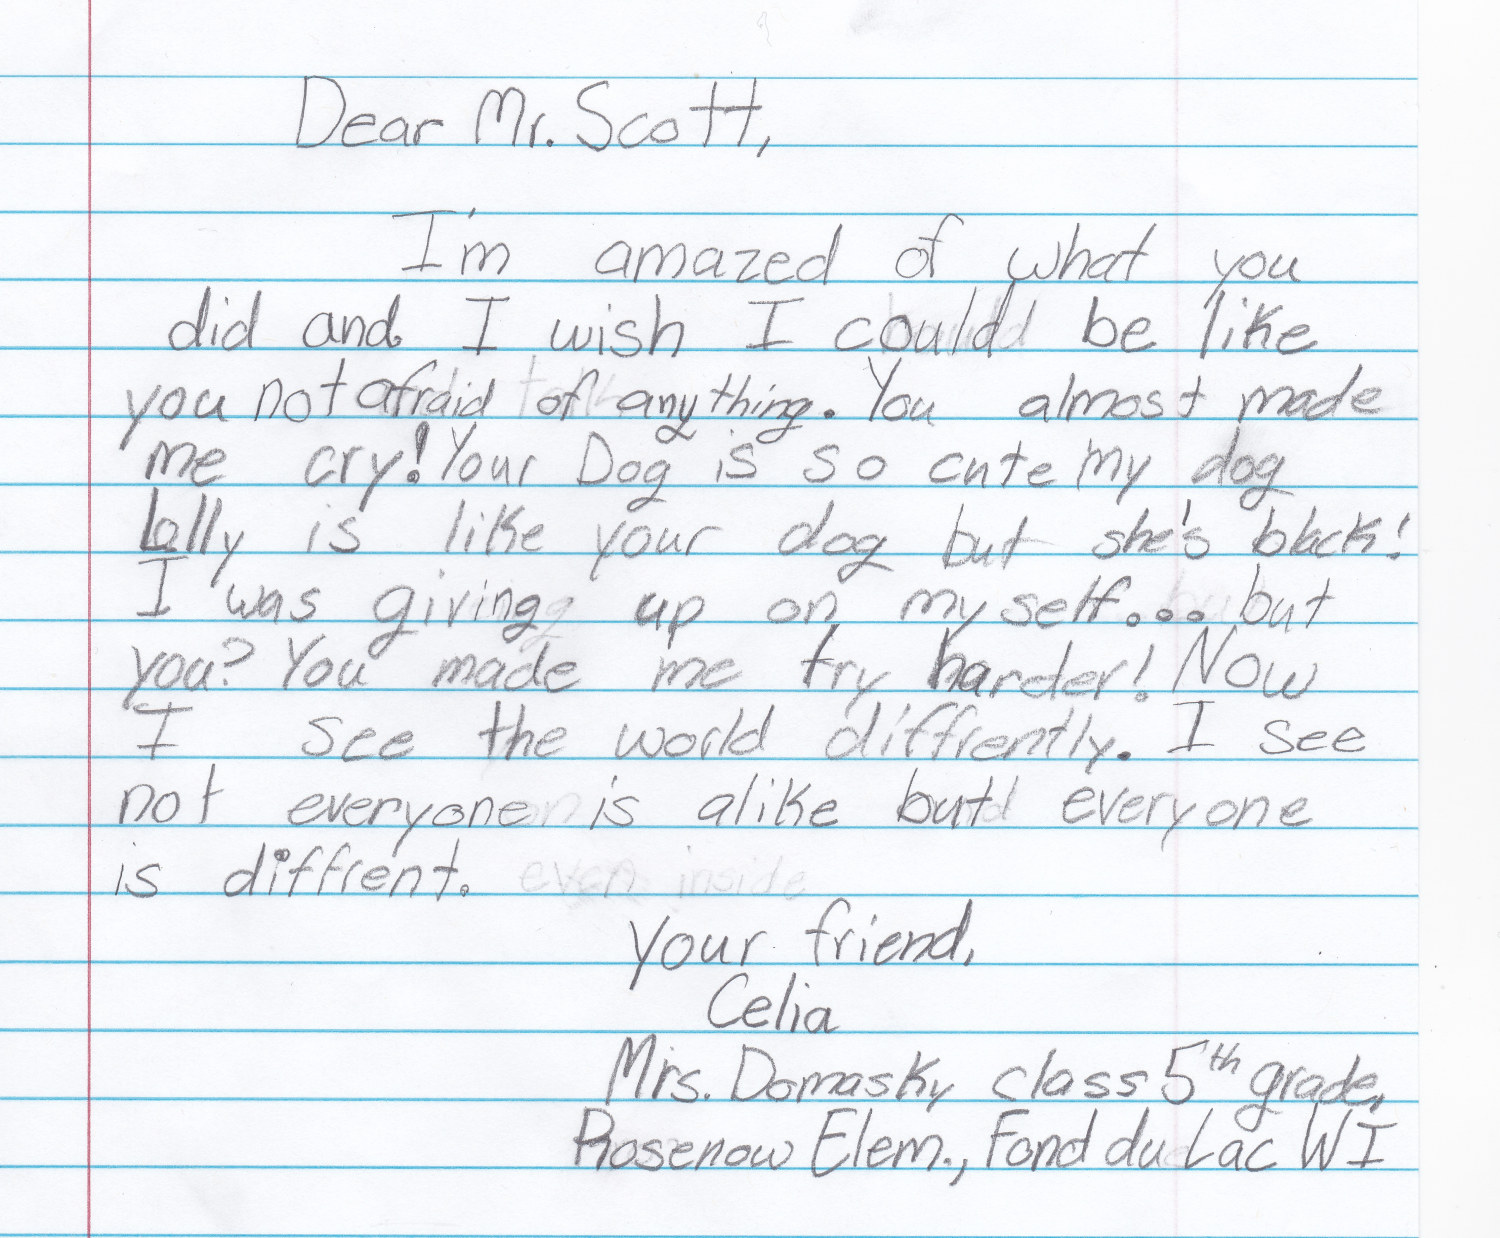 Dear Mr. Scott,
I'm amazed of what you
did and I wish I could be like
you not afraid of anything. You almost made
me cry! Your Dog is so cute my dog
Lolly is like your dog but she's black!
I was giving up on myself... but
you? You made me try harder! Now
I see the world diffrently. I see
not everyone is alike but everyone
is diffrent. even inside
Your friend,
Celia
Mrs. Domasky class 5th grade,
Rosenow Elem., Fond du Lac WI